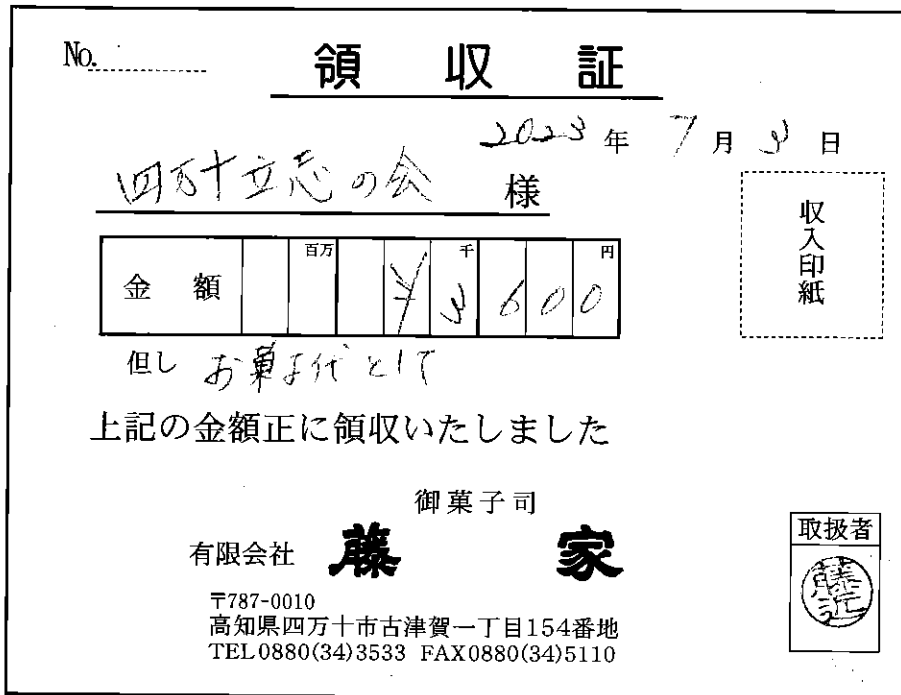 No.
領収証
2023年7月3日
四万十立志の会 様
金額 百万 千 円
¥3600
但し お菓子代として
収入印紙
上記の金額正に領収いたしました
御菓子司
有限会社 藤家
〒787-0010
高知県四万十市古津賀一丁目154番地
TEL0880(34)3533 FAX0880(34)5110
取扱者
藤近